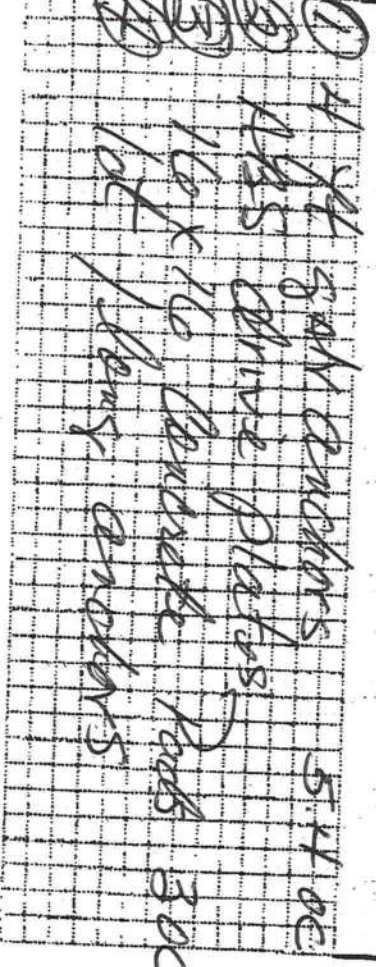 ① 4 ft soil anchors 5.4 oc
② 4x5 drive plates
③ 16 x 16 Concrete Pads 3 oc
④ 10t / long anchors